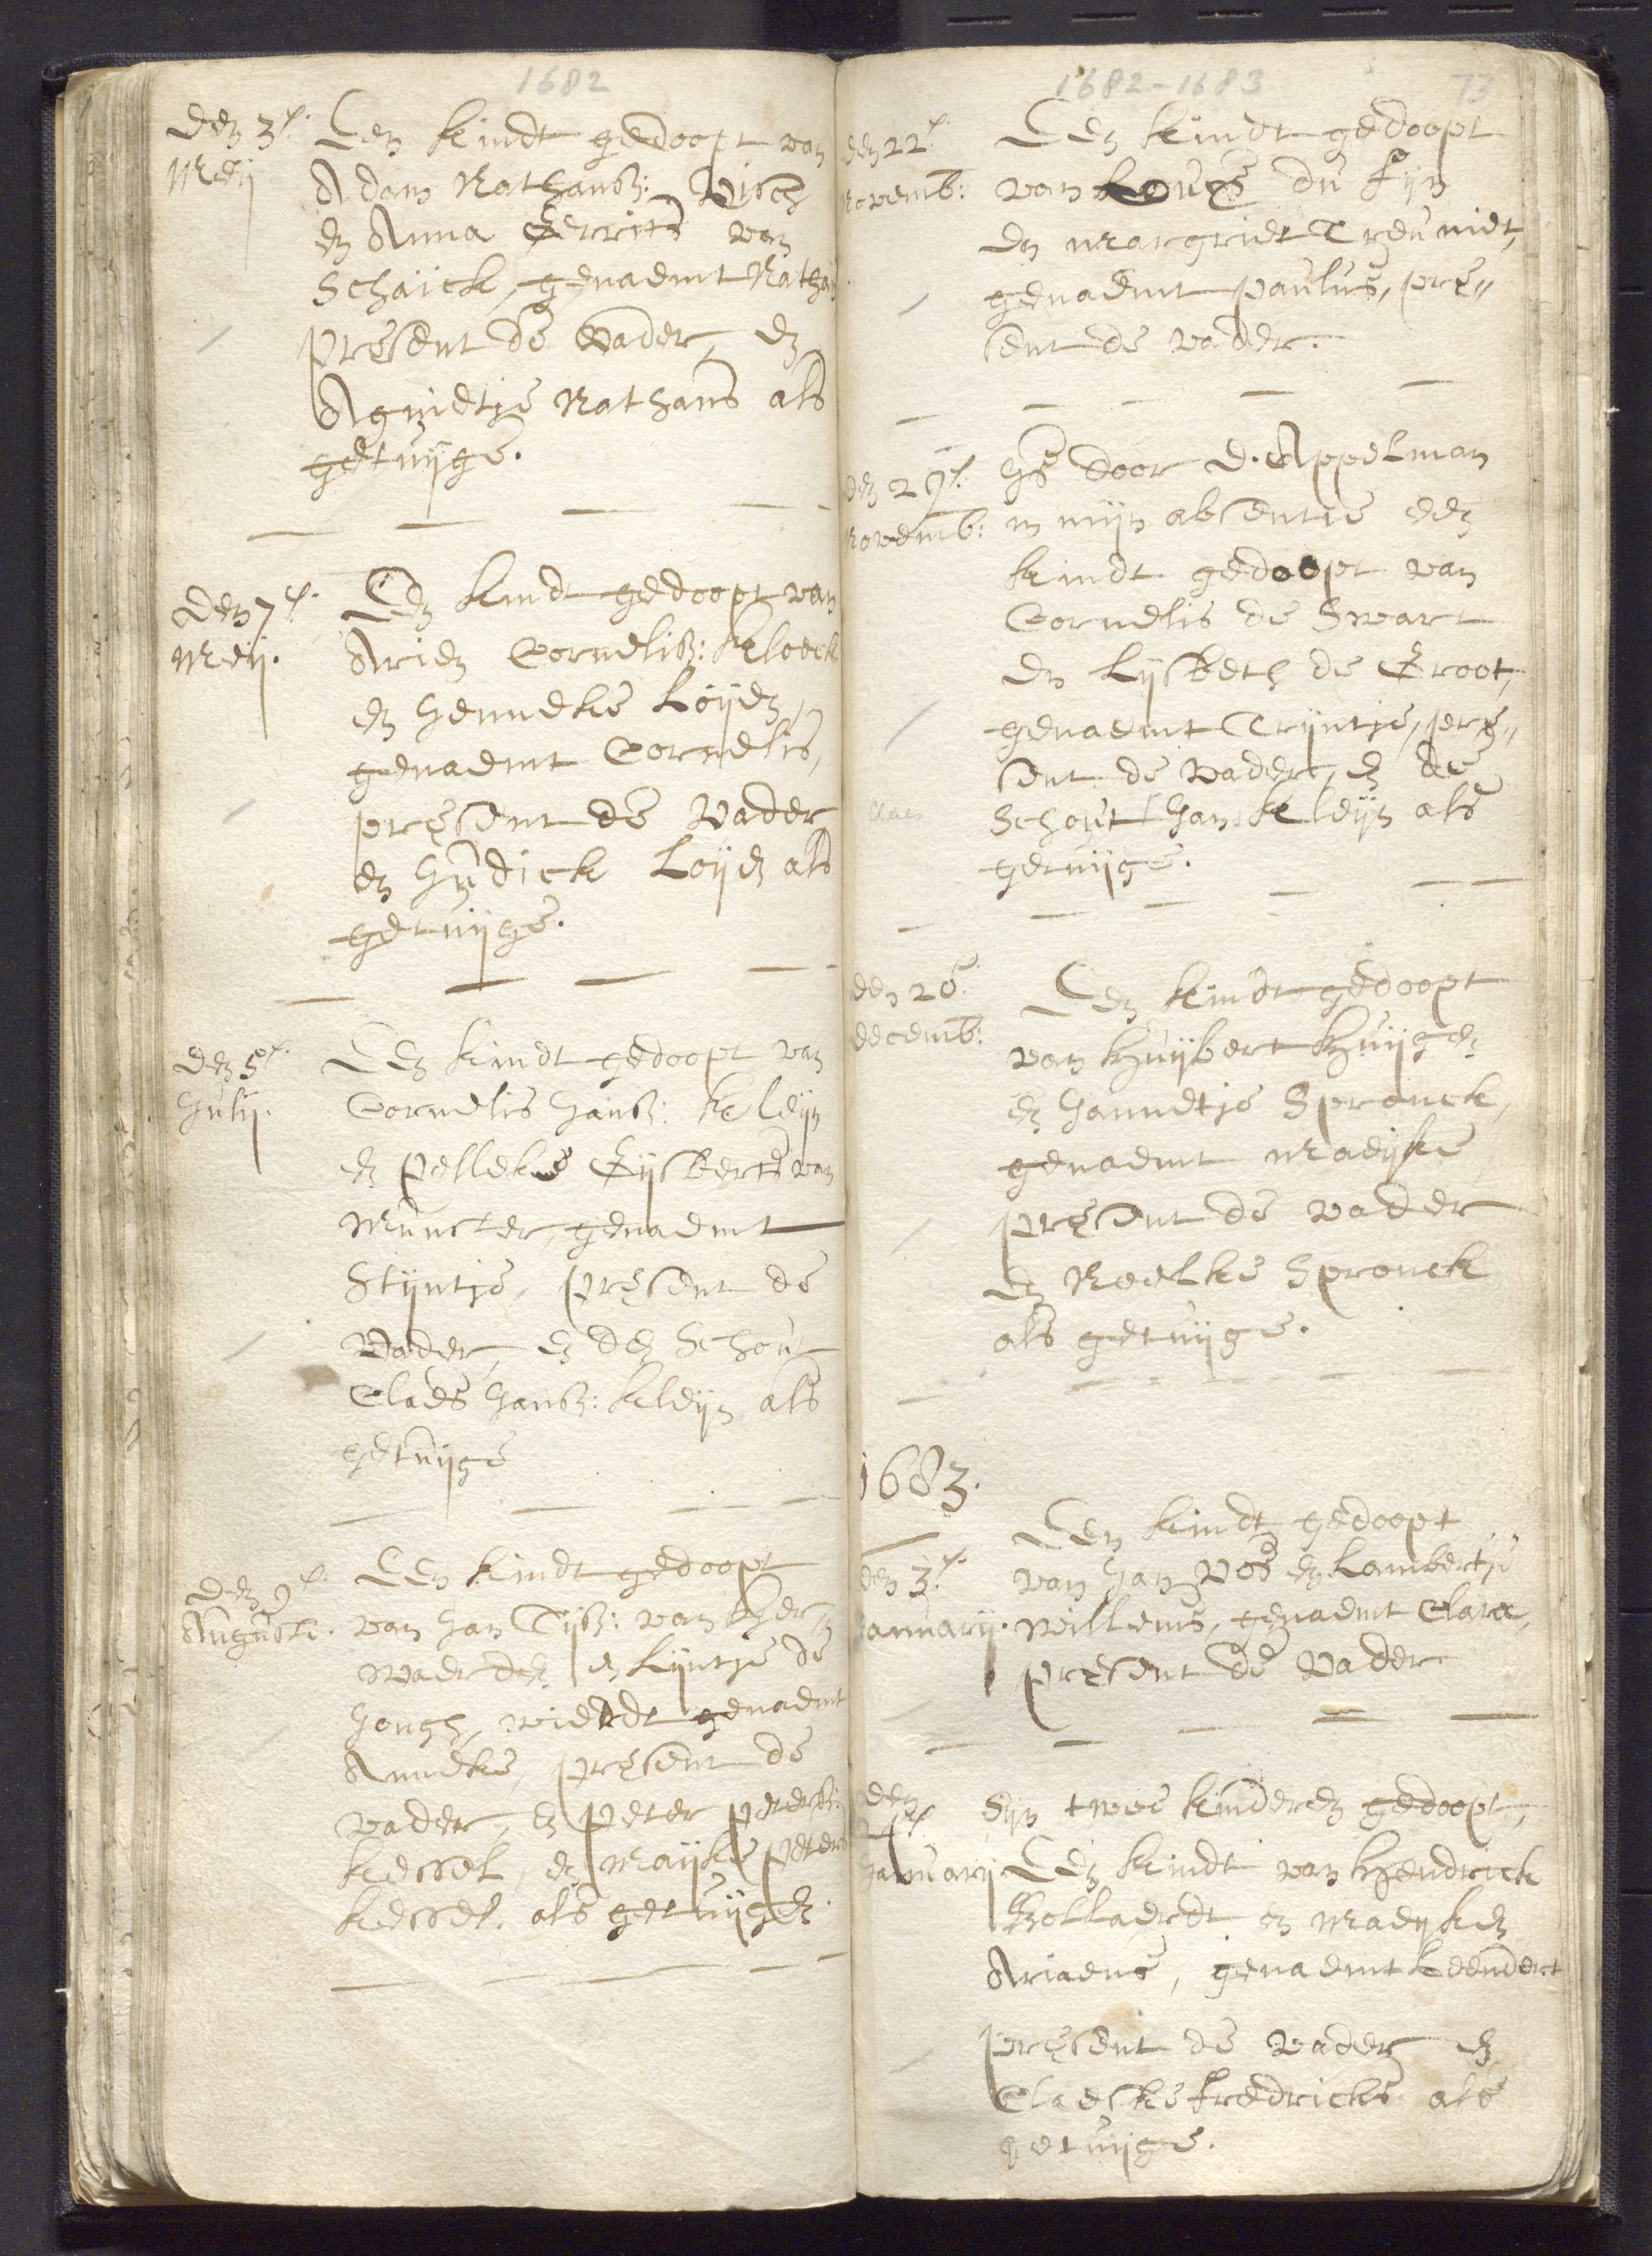 1682
den 3e.
Meij
Een kindt gedoopt van
Adam Nathansz: Visch
en Anna Gerrits van
Schaick, genaemt Nathan
present de vader, en
Agnietje Nathans als
getuijge.
den 7e.
Meij.
Een kindt gedoopt van
Arien Cornelisz: Kloeck
en Henneke Loijen,
genaemt Cornelis,
present de Vader
en Hendick Loijen als
getuijge.
den 5e.
Julij.
Een kindt gedoopt van
Cornelis Jansz: Kleijn
en Pelleke Gijsberts van
Munster, genaemt
Stijntje, present de
Vader, en den Schout
Claes Jansz: Kleijn als
getuijge
den 9e.
Augusti.
Een kindt gedoopt
van Jan Tijsz: van Her-
waerden en Lijntje de
Jongh, wierdt genaemt
Anneke, present de
vader, en Peter Petersz:
Kessel, en Maijke Peters
Kessel, als getuijgen.
1682-1683
73
den 22e.
Novemb:
Een kindt gedoopt
van Louys du Fijn
en Margriet Treuniet,
genaemt Paulus, pre-
sent de vader.
den 29e.
Novemb:
Is door D. Appelman
in mijn absentie een
kindt gedoopt van
Cornelis de Swart
en Lijsbeth de Groot,
genaemt Trijntje, pre-
sent de Vader, en de
Claes
Schout Jan Kleijn als
getuijge.
den 26.
decemb:
Een kindt gedoopt
van Huijbert Huijgen
en Hannetje Spronck,
genaemt Maeijke
present de vader
en Neelke Spronck
als getuijge.
1683.
den 3e.
Januarij.
Een kindt gedoopt
van Jan Vos en Lambertje
Willems, genaemt Clara,
present de Vader
den
Januarij
Sijn twee kinderen gedoopt,
Een kindt van Hendrick
Bollaerdt en Maeijken
Ariaens, genaemt Leendert
present de vader en
Claeske Fredricks als
getuijge.